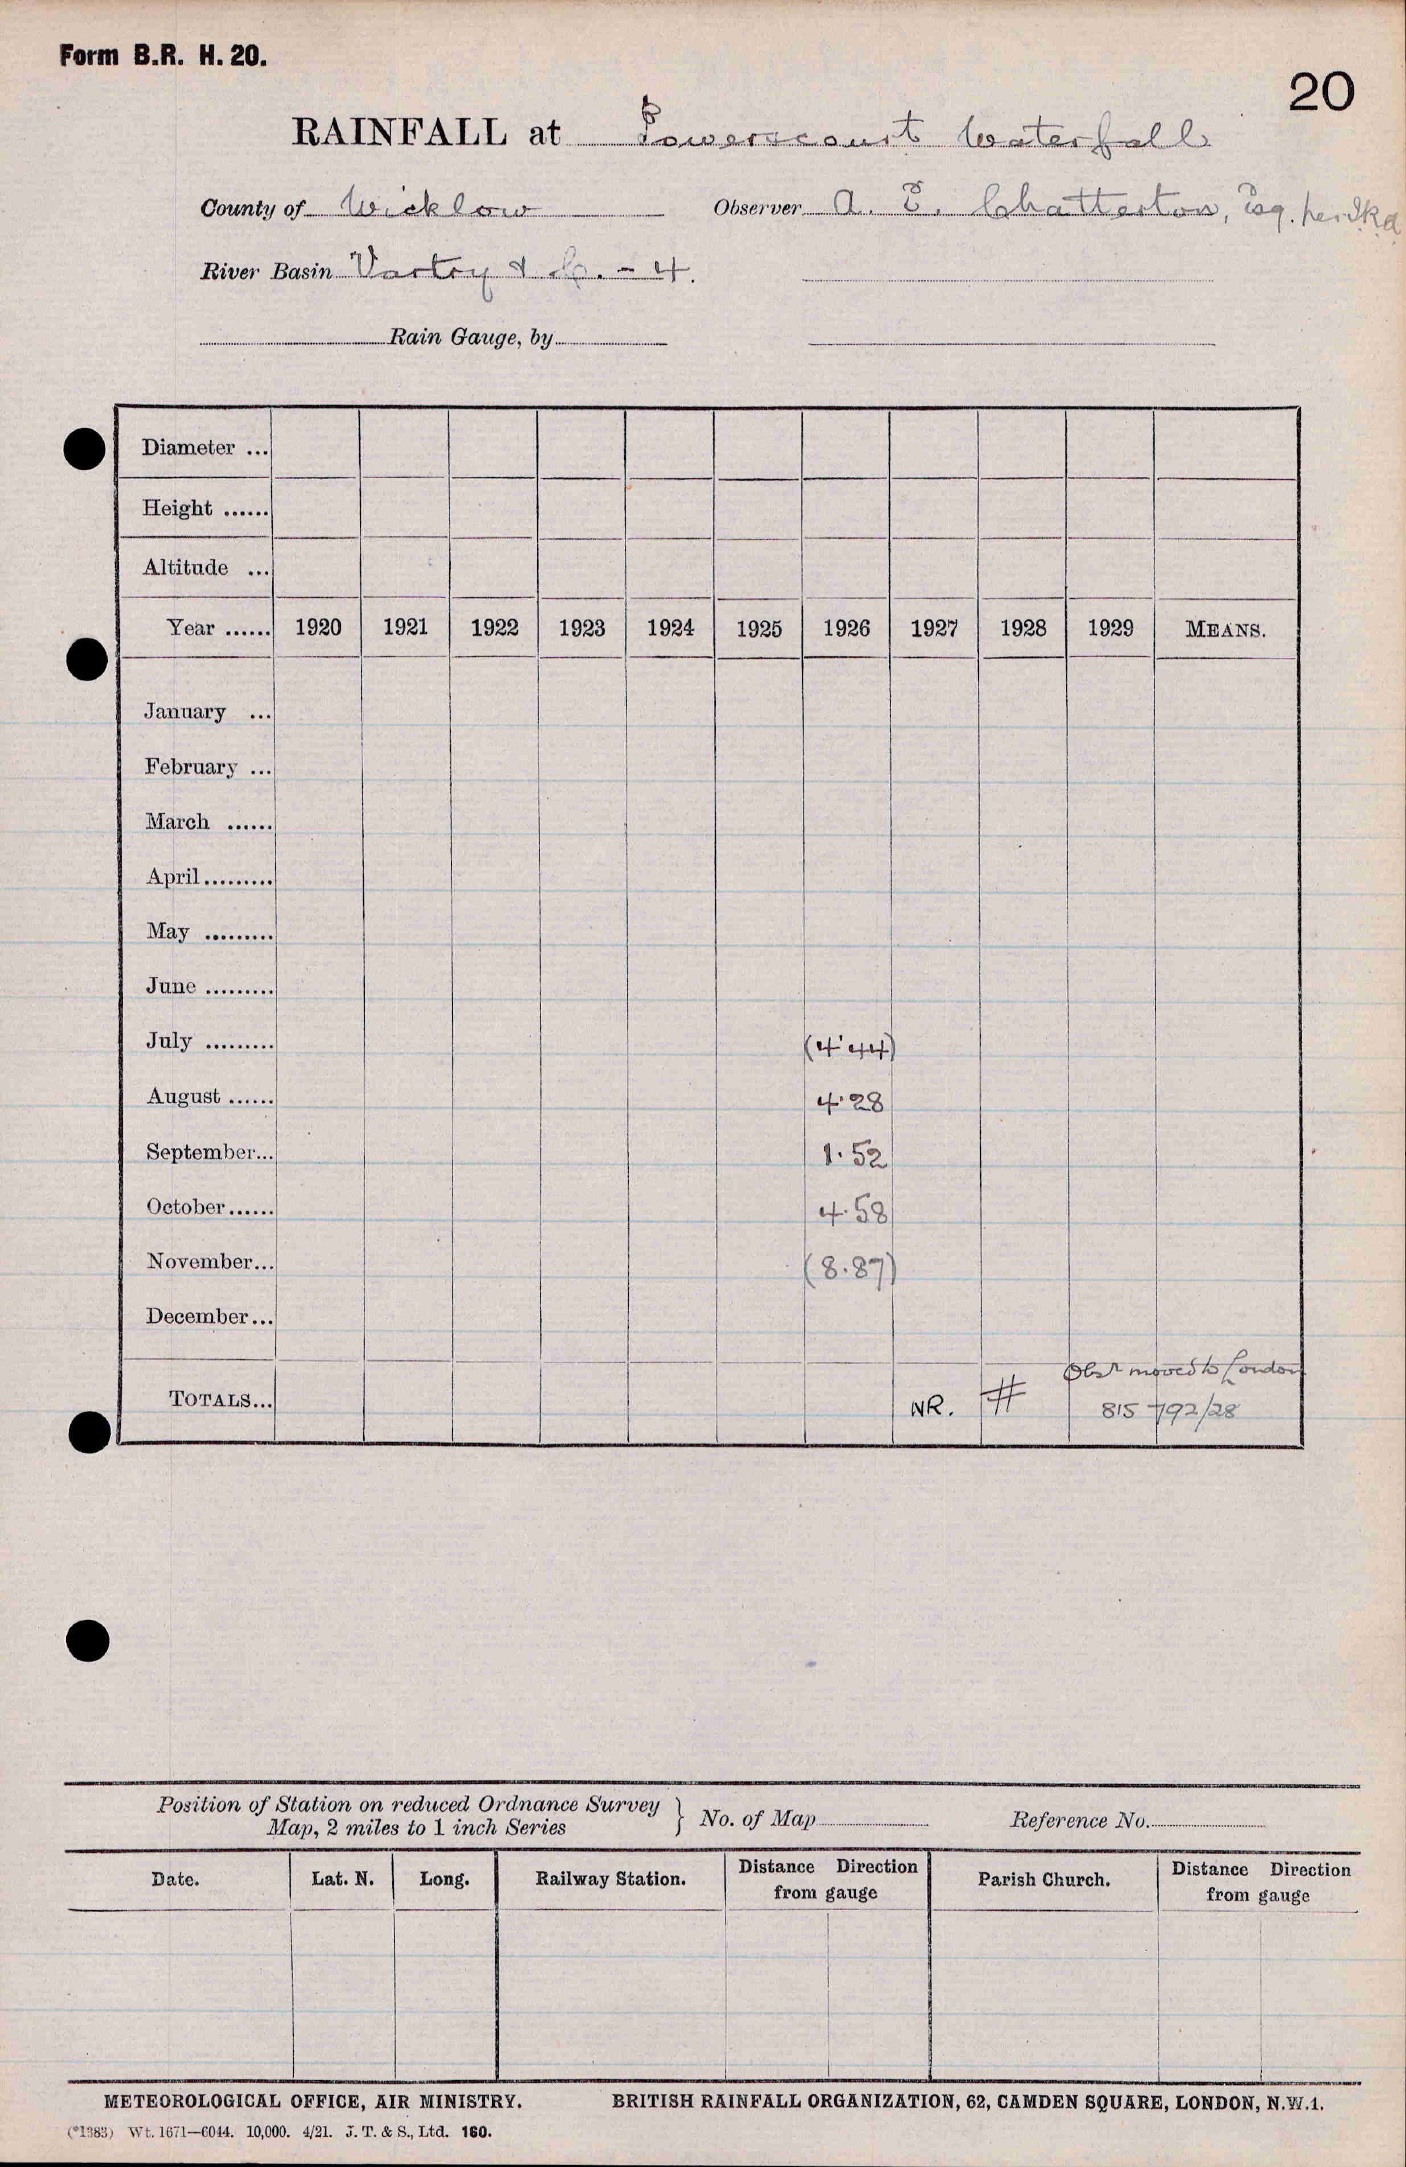 Form B.R. H. 20.
20
RAINFALL at Powerscourt Waterfall
County of Wicklow Observer A. E. Chatterton, Esq.
River Basin Vartry & C. - 4.
Rain Gauge, by
Diameter ...
Height ......
Altitude ...
Year ...... 1920 1921 1922 1923 1924 1925 1926 1927 1928 1929 MEANS.
January ...
February ...
March ......
April.........
May .........
June .........
July ......... (4·44)
August ...... 4·28
September... 1·52
October...... 4·58
November... (8·87)
December...
Obsr moved to London
TOTALS... NR. # 815 792/28
Position of Station on reduced Ordnance Survey
Map, 2 miles to 1 inch Series } No. of Map Reference No.
Date. Lat. N. Long. Railway Station. Distance Direction from gauge Parish Church. Distance Direction from gauge
METEOROLOGICAL OFFICE, AIR MINISTRY. BRITISH RAINFALL ORGANIZATION, 62, CAMDEN SQUARE, LONDON, N.W.1.
(*1383) Wt. 1671—6044. 10,000. 4/21. J. T. & S., Ltd. 160.